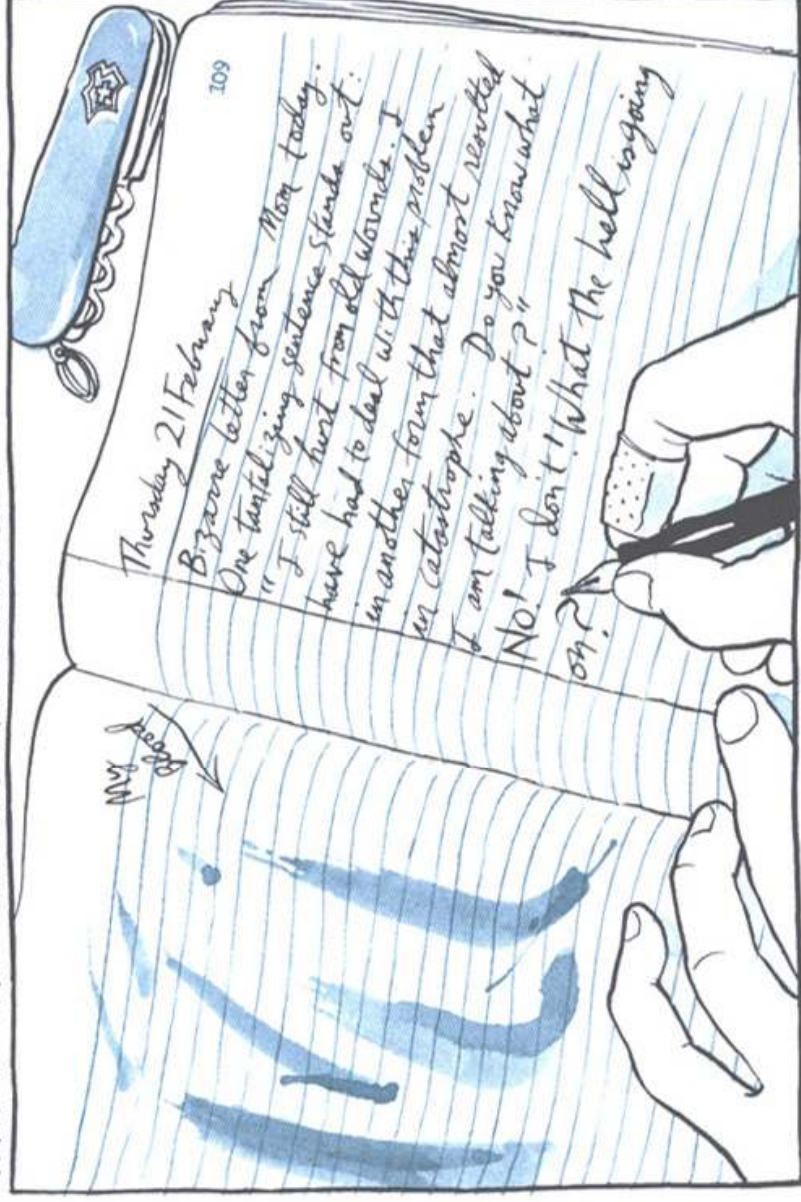 My
109
Thursday 21 February
Bizarre letter from Mom today.
One tantalizing sentence stands out:
"I still hurt from old wounds. I
have had to deal with this problem
in another form that almost resulted
in catastrophe. Do you know what
I am talking about?"
NO! I don't! What the hell is going
on?